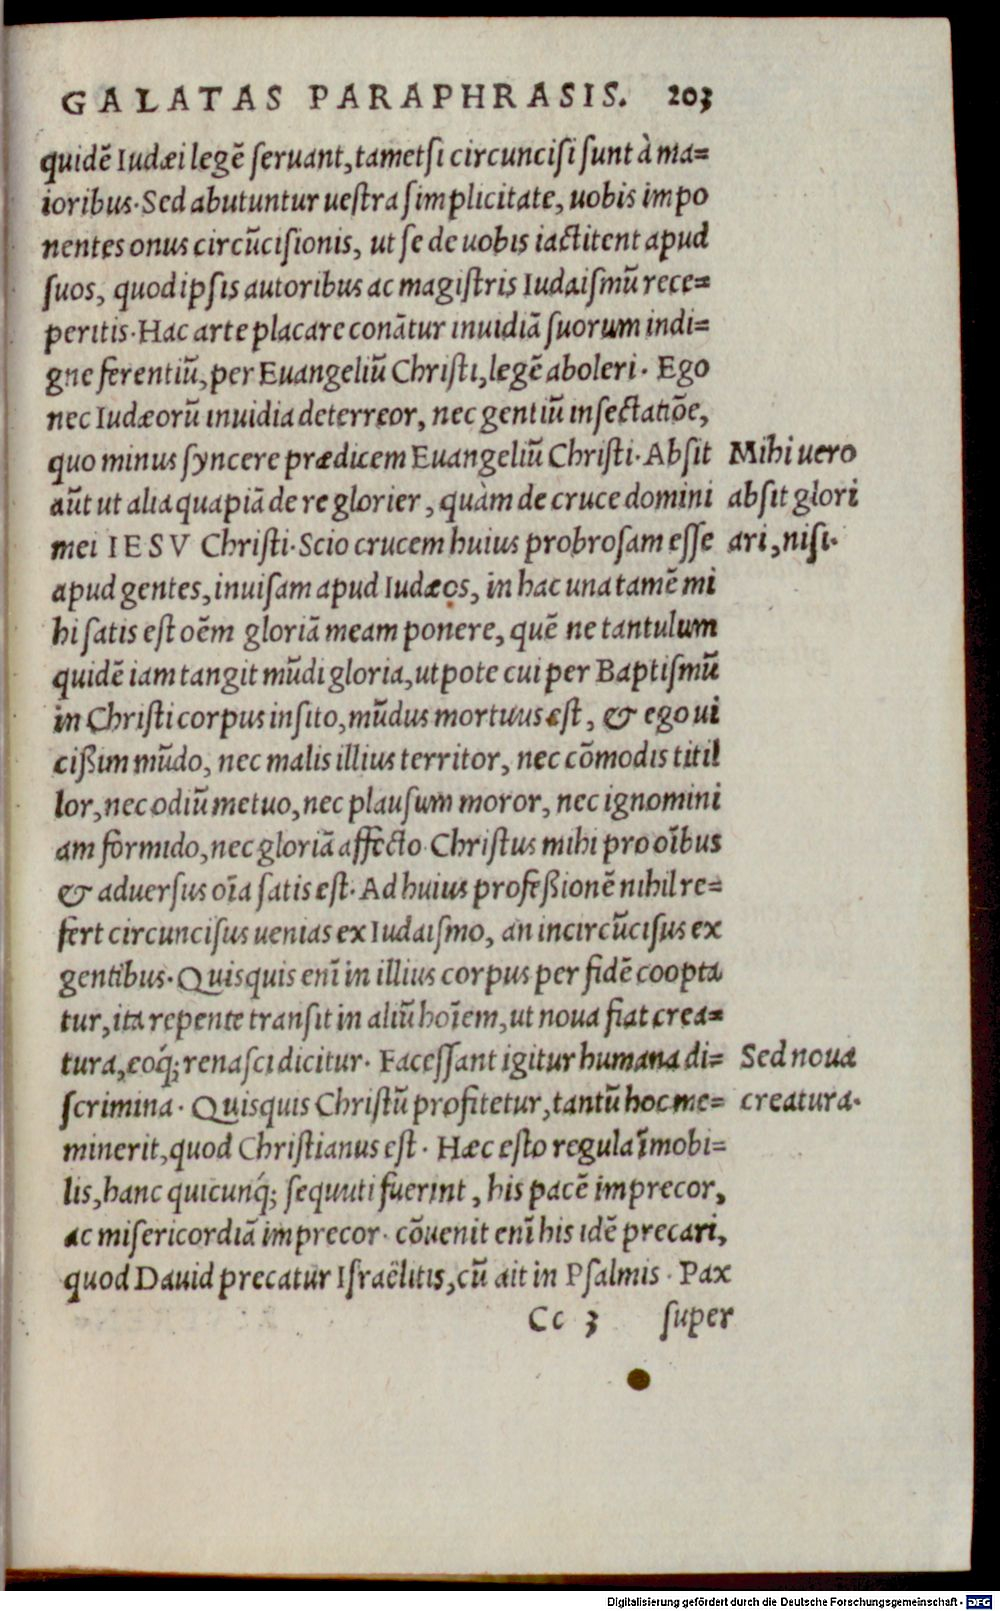 GALATAS PARAPHRASIS. 203
quidē Iudæi legē ſeruant, tametſi circunciſi ſunt à ma=
ioribus. Sed abutuntur ueſtra ſimplicitate, uobis impo
nentes onus circūciſionis, ut ſe de uobis iactitent apud
ſuos, quod ipſis autoribus ac magiſtris Iudaiſmū rece=
peritis. Hac arte placare conātur inuidiā ſuorum indi=
gne ferentiū, per Euangeliū Chriſti, legē aboleri. Ego
nec Iudæorū inuidia deterreor, nec gentiū inſectatiōe,
quo minus ſyncere prædicem Euangeliū Chriſti. Abſit
aūt ut alia quapiā de re glorier, quàm de cruce domini
mei IESV Chriſti. Scio crucem huius probroſam eſſe
apud gentes, inuiſam apud Iudæos, in hac una tamē mi
hi ſatis eſt oēm gloriā meam ponere, quē ne tantulum
quidē iam tangit mūdi gloria, utpote cui per Baptiſmū
in Chriſti corpus inſito, mūdus mortuus eſt, & ego ui
cißim mūdo, nec malis illius territor, nec cōmodis titil
lor, nec odiū metuo, nec plauſum moror, nec ignomini
am formido, nec gloriā affecto. Chriſtus mihi pro oībus
& aduerſus oīa ſatis eſt. Ad huius profeßionē nihil re=
fert circunciſus uenias ex Iudaiſmo, an incircūciſus ex
gentibus. Quisquis enī in illius corpus per fidē coopta
tur, ita repente tranſit in aliū hoīem, ut noua fiat crea=
tura, eoq́; renaſci dicitur. Faceſſant igitur humana di=
ſcrimina. Quisquis Chriſtū profitetur, tantū hoc me=
minerit, quod Chriſtianus eſt. Hæc eſto regula īmobi=
lis, hanc quicunq́; ſequuti fuerint, his pacē imprecor,
ac miſericordiā imprecor. cōuenit enī his idē precari,
quod Dauid precatur Iſraëlitis, cū ait in Pſalmis. Pax
Cc 3 ſuper
Mihi uero
abſit glori
ari, niſi.
Sed noua
creatura.
Digitalisierung gefördert durch die Deutsche Forschungsgemeinschaft - DFG